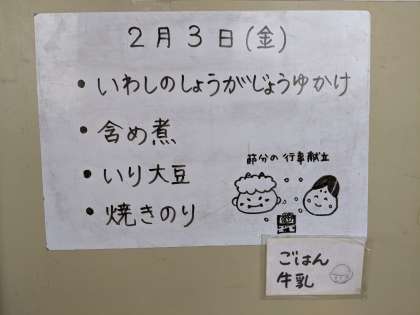 2月3日(金)
・いわしのしょうがじょうゆかけ
・含め煮
・いり大豆
・焼きのり
節分の行事献立
ごはん
牛乳